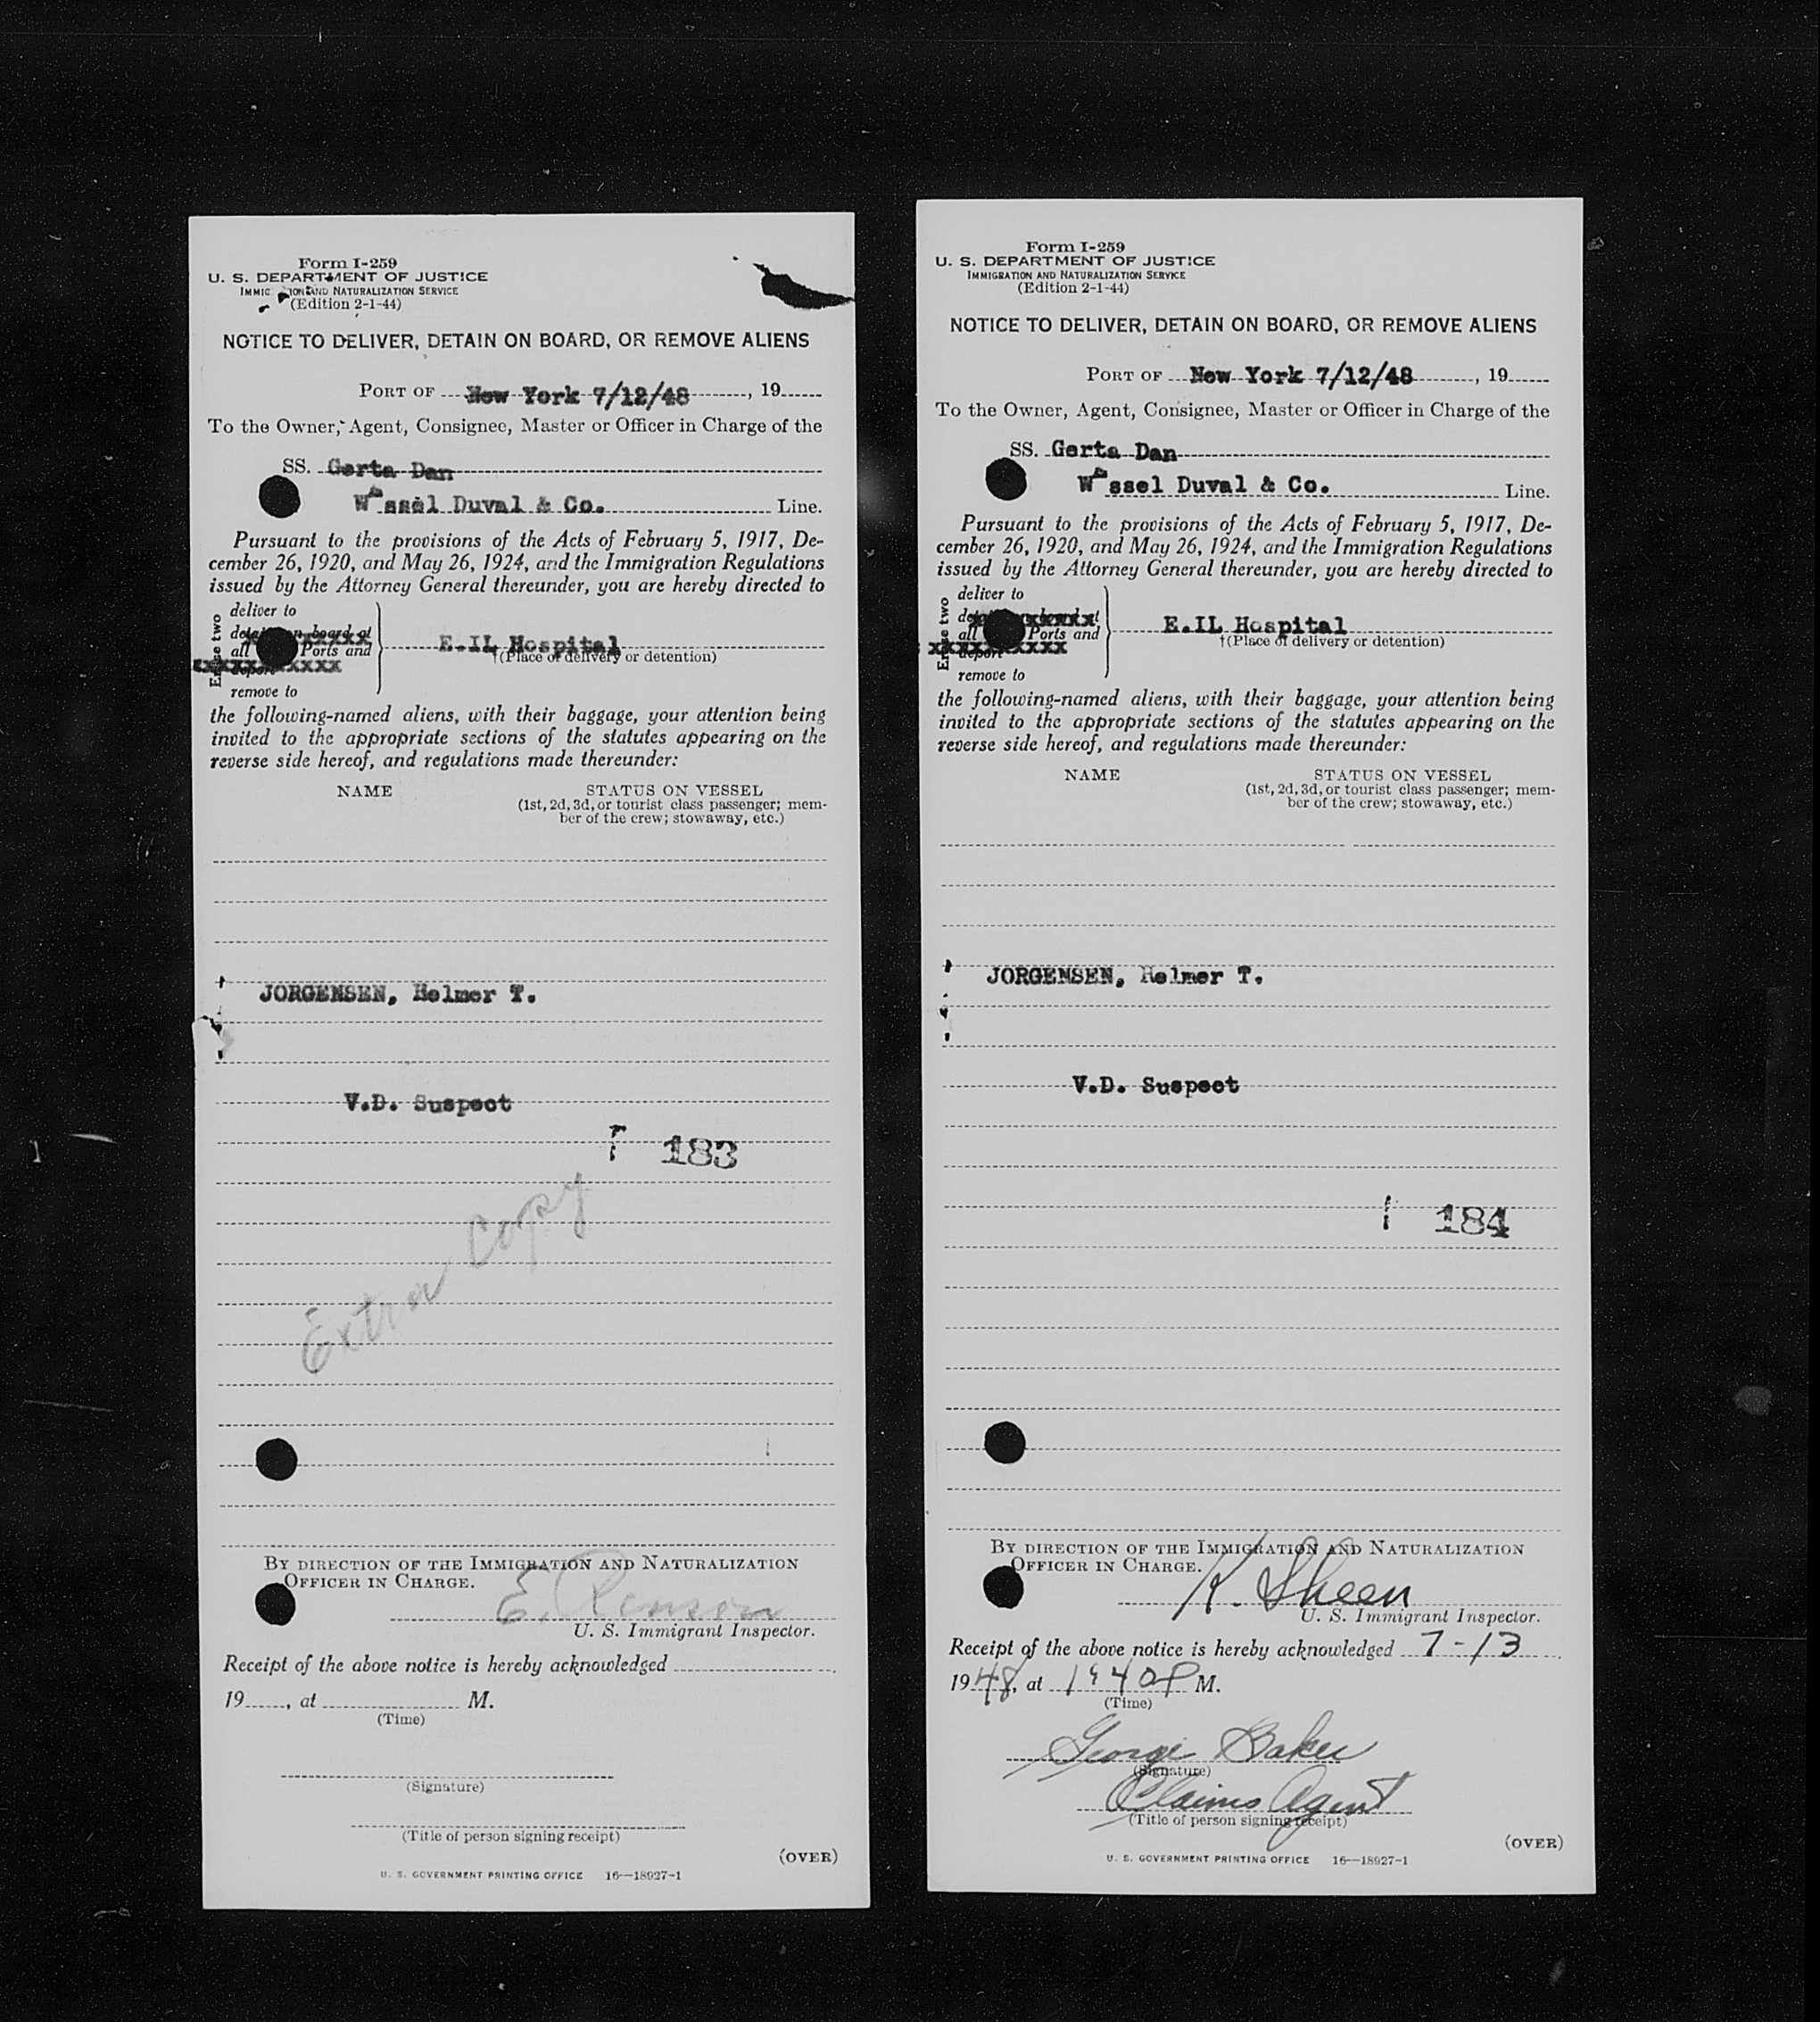 Form I-259
U. S. DEPARTMENT OF JUSTICE
IMMIGRATION AND NATURALIZATION SERVICE
(Edition 2-1-44)
NOTICE TO DELIVER, DETAIN ON BOARD, OR REMOVE ALIENS
PORT OF New York 7/12/48, 19
To the Owner, Agent, Consignee, Master or Officer in Charge of the
SS. Gerta Dan
Wessel Duval & Co. Line.
Pursuant to the provisions of the Acts of February 5, 1917, De-
cember 26, 1920, and May 26, 1924, and the Immigration Regulations
issued by the Attorney General thereunder, you are hereby directed to
deliver to
on board at
all Ports and
E.IL Hospital
†(Place of delivery or detention)
remove to
the following-named aliens, with their baggage, your attention being
invited to the appropriate sections of the statutes appearing on the
reverse side hereof, and regulations made thereunder:
NAME STATUS ON VESSEL
(1st, 2d, 3d, or tourist class passenger; mem-
ber of the crew; stowaway, etc.)
JORGENSEN, Helmer T.
V.D. Suspect
183
Extra Copy
BY DIRECTION OF THE IMMIGRATION AND NATURALIZATION
OFFICER IN CHARGE.
E.
U. S. Immigrant Inspector.
Receipt of the above notice is hereby acknowledged
19, at M.
(Time)
(Signature)
(Title of person signing receipt)
(OVER)
U. S. GOVERNMENT PRINTING OFFICE 16—18927-1
Form I-259
U. S. DEPARTMENT OF JUSTICE
IMMIGRATION AND NATURALIZATION SERVICE
(Edition 2-1-44)
NOTICE TO DELIVER, DETAIN ON BOARD, OR REMOVE ALIENS
PORT OF New York 7/12/48, 19
To the Owner, Agent, Consignee, Master or Officer in Charge of the
SS. Gerta Dan
Wessel Duval & Co. Line.
Pursuant to the provisions of the Acts of February 5, 1917, De-
cember 26, 1920, and May 26, 1924, and the Immigration Regulations
issued by the Attorney General thereunder, you are hereby directed to
deliver to
all Ports and
E.IL Hospital
†(Place of delivery or detention)
deport
remove to
the following-named aliens, with their baggage, your attention being
invited to the appropriate sections of the statutes appearing on the
reverse side hereof, and regulations made thereunder:
NAME STATUS ON VESSEL
(1st, 2d, 3d, or tourist class passenger; mem-
ber of the crew; stowaway, etc.)
JORGENSEN, Helmer T.
V.D. Suspect
184
BY DIRECTION OF THE IMMIGRATION AND NATURALIZATION
OFFICER IN CHARGE.
K. Sheen
U. S. Immigrant Inspector.
Receipt of the above notice is hereby acknowledged 7-13
1948, at P M.
(Time)
George Baker
(Signature)
Claims Agent
(Title of person signing receipt)
(OVER)
U. S. GOVERNMENT PRINTING OFFICE 16—18927-1